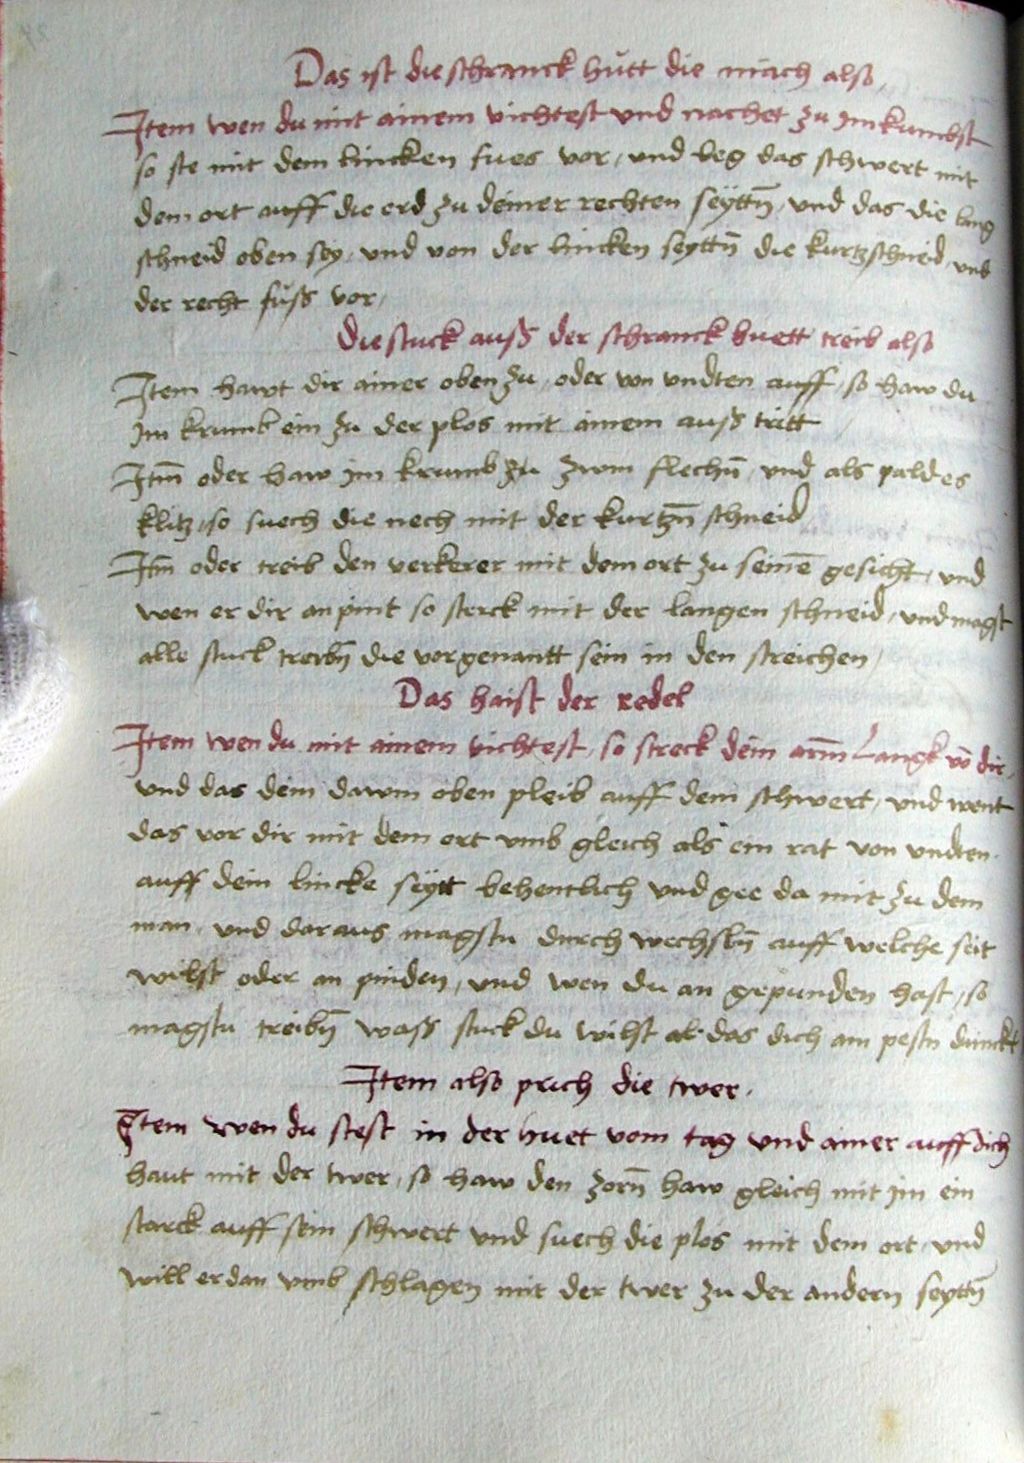 Das ist die schranck hütt die mach also,
Item wen du mit ainem vichtest vnd nachet zu im kumbst
so ste mit dem lincken fues vor, vnd leg das schwert mit
dem ort auff die erd zu deiner rechten seyttn̄, vnd das die lang
schneid oben sey, vnd von der lincken seyttn̄ die kurtz schneid, vnd
der recht fuß vor,
Die stuck auß der schranck huett treib also
Item hawt dir ainer oben zu, oder von vndten auff, so haw du
Im krumb ein zu der plos mit ainem auß tritt
Itm̄ oder haw jm krumb zu zwm flechn̄, vnd als pald es
klitz, so suech die nech mit der kurtzn̄ schneid
Itm̄ oder treib den verkerer mit dem ort zu seinē gesicht, vnd
wen er dir an pint so sterck mit der langen schneid, vnd magst
alle stuck treibn̄ die vor genantt sein in den streichen,
Das haist der redel
Item wen du mit ainem vichtest, so streck dein arm̄ Langk vō dir,
vnd das dein dawm oben pleib auff dem schwert, vnd went
das vor dir mit dem ort vmb gleich als ein rat von vndten
auff dein lincke seytt behentlich vnd gee da mit zu dem
man, vnd dar aus magstu durch wechsln̄ auff welche seit
wilst oder an pinden, vnd wen du an gepunden hast, so
magstu treibn̄ waß stuck du wilst als das dich am pestn dünckt
Item also prich die twer,
Item wen du stest in der huet vom tag vnd ainer auff dich
haut mit der twer, so haw den zorn̄ haw gleich mit im ein
starck auff sein schwert vnd suech die plos mit dem ort, vnd
will er dan vmb schlagen mit der twer zu der andern seyttn̄